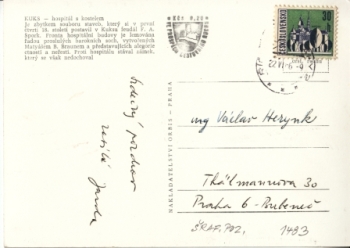 KUKS — hospitál s kostelem
je zbytkem souboru staveb, který si v první
čtvrti 18. století postavil v Kuksu hrabě F. A.
Špork. Fronta hospitálni budovy je lemována
řadou proslulých barokních soch, vytvořených
Matyášem B. Braunem a představujících alegorie
ctností a neřestí. Proti hospitálu stával zámek,
který se však nedochoval
Kčs 0,20
ČESKOSLOVENSKO
30
srdečný pozdrav
zasílá Jarda
NAKLADATELSTVÍ ORBIS - PRAHA
ing Václav Herynk
Thälmannova 30
Praha 6 - Bubeneč
1493